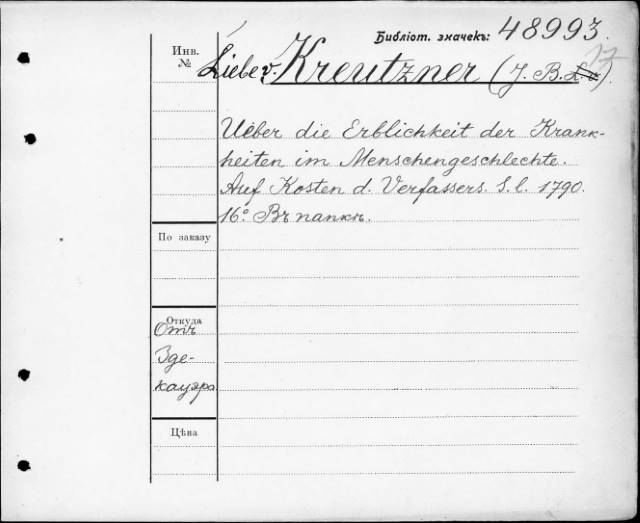 Библіот. значекъ: 48993.
17
Инв.
№
Liebe v. Kreutzner (J. B. L. v.)
Ueber die Erblichkeit der Krank-
heiten im Menschengeschlechte.
Auf Kosten d. Verfassers. S. l. 1790.
16° Въ папкѣ.
По заказу
Откуда
Отъ
Зде-
кауэра
Цѣна